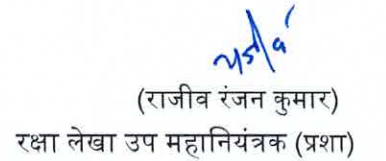 (राजीव रंजन कुमार)
रक्षा लेखा उप महानियंत्रक (प्रशा)